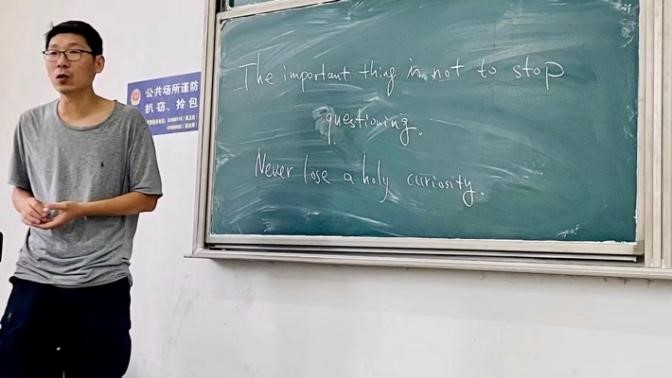 公共场所谨防
扒窃、拎包
The important thing is not to stop
questioning.
Never lose a holy curiosity.